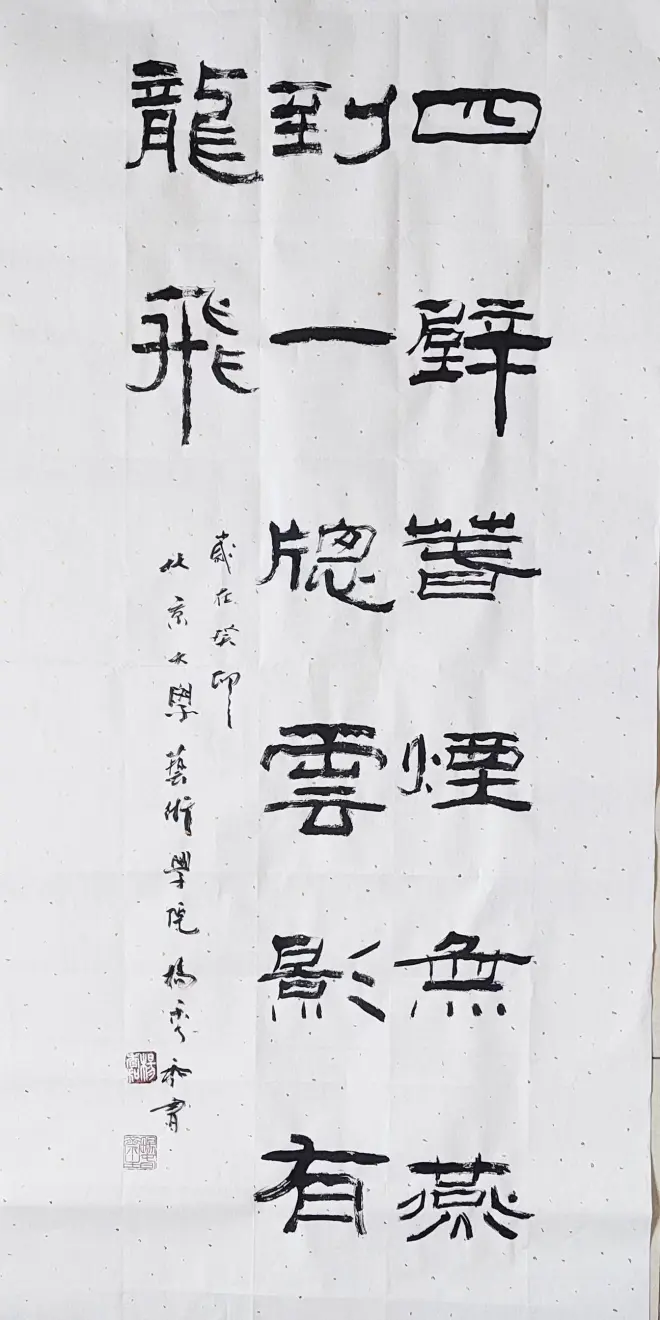 四壁暮煙無燕
到一牕雲影有
龍飛
歲在癸卯
北京大學藝術學院楊秀和書